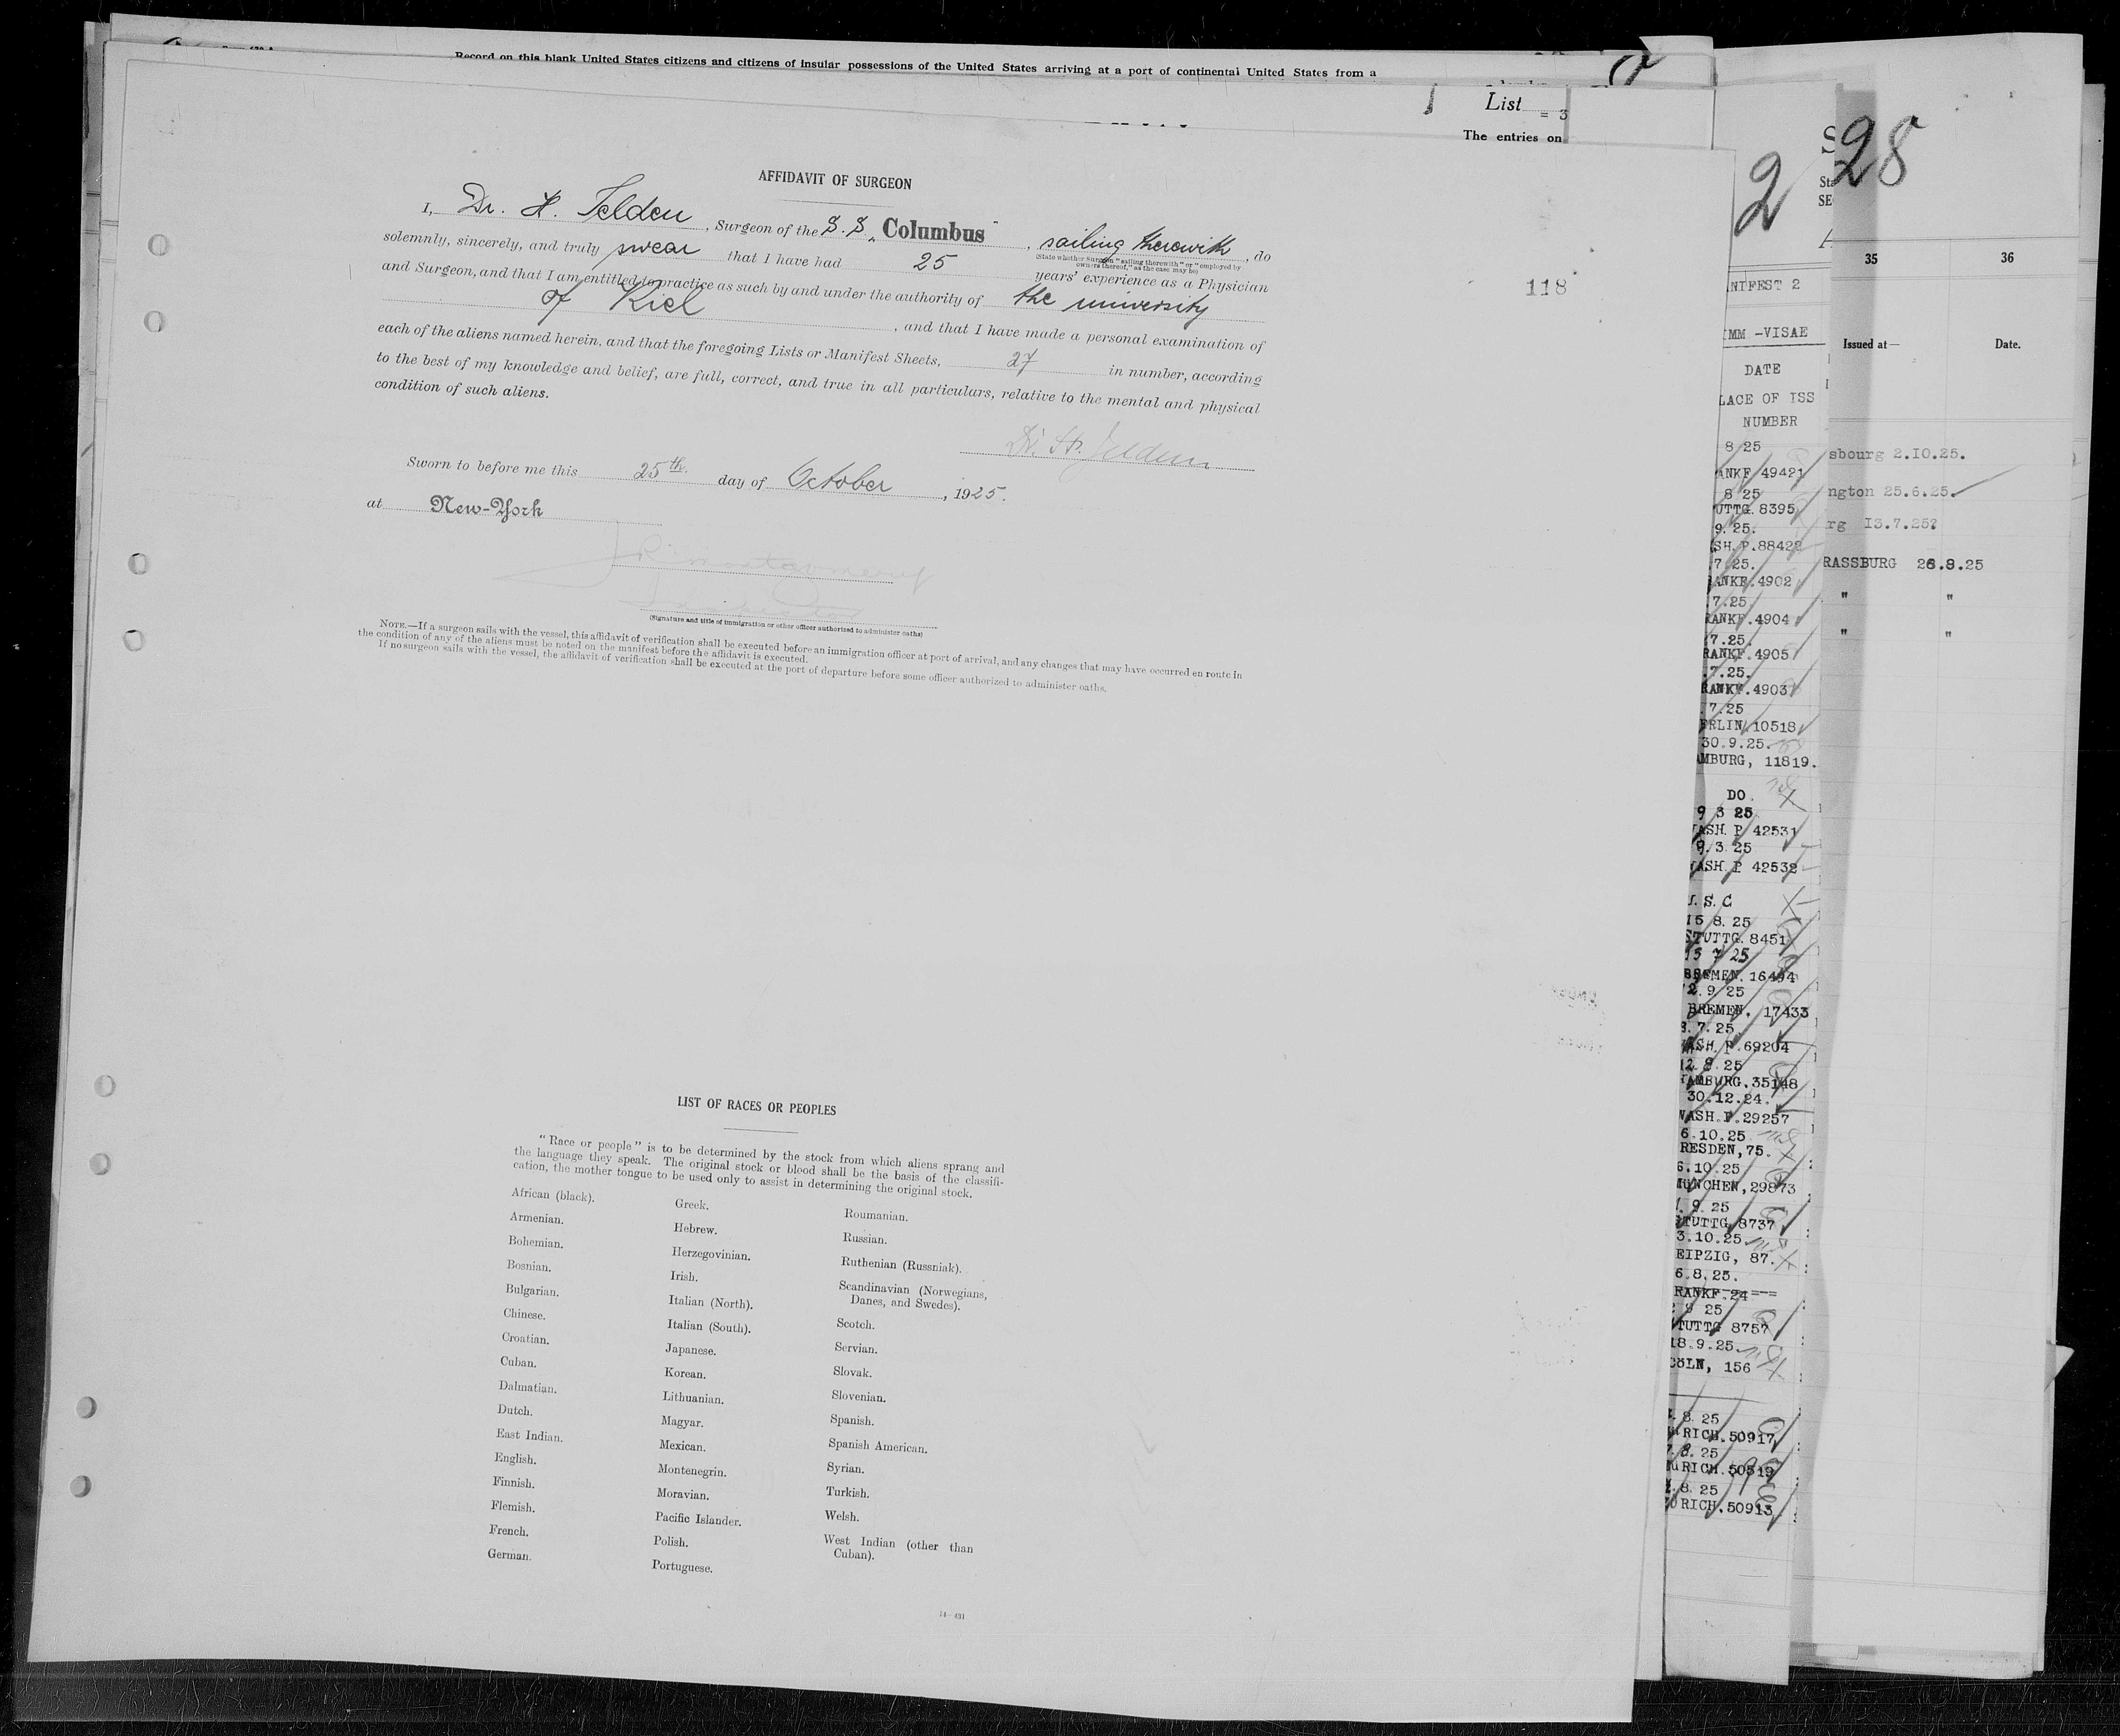 Record on this blank United States citizens and citizens of insular possessions of the United States arriving at a port of continental United States from a
List
= 3
The entries on
AFFIDAVIT OF SURGEON
I, Dr. H. Felden, Surgeon of the S.S. „Columbus", sailing therewith, do
(State whether surgeon "sailing therewith" or "employed by
owners thereof," as the case may be)
solemnly, sincerely, and truly swear that I have had 25 years' experience as a Physician
and Surgeon, and that I am entitled to practice as such by and under the authority of the university
of Kiel, and that I have made a personal examination of
each of the aliens named herein, and that the foregoing Lists or Manifest Sheets, 27 in number, according
to the best of my knowledge and belief, are full, correct, and true in all particulars, relative to the mental and physical
condition of such aliens.
Sworn to before me this 25th. day of October, 1925.
at New-York
(Signature and title of immigration or other officer authorized to administer oaths)
NOTE.—If a surgeon sails with the vessel, this affidavit of verification shall be executed before an immigration officer at port of arrival, and any changes that may have occurred en route in
the condition of any of the aliens must be noted on the manifest before the affidavit is executed.
If no surgeon sails with the vessel, the affidavit of verification shall be executed at the port of departure before some officer authorized to administer oaths.
118
LIST OF RACES OR PEOPLES
"Race or people" is to be determined by the stock from which aliens sprang and
the language they speak. The original stock or blood shall be the basis of the classifi-
cation, the mother tongue to be used only to assist in determining the original stock.
African (black).
Armenian.
Bohemian.
Bosnian.
Bulgarian.
Chinese.
Croatian.
Cuban.
Dalmatian.
Dutch.
East Indian.
English.
Finnish.
Flemish.
French.
German.
Greek.
Hebrew.
Herzegovinian.
Irish.
Italian (North).
Italian (South).
Japanese.
Korean.
Lithuanian.
Magyar.
Mexican.
Montenegrin.
Moravian.
Pacific Islander.
Polish.
Portuguese.
Roumanian.
Russian.
Ruthenian (Russniak).
Scandinavian (Norwegians,
Danes, and Swedes).
Scotch.
Servian.
Slovak.
Slovenian.
Spanish.
Spanish American.
Syrian.
Turkish.
Welsh.
West Indian (other than
Cuban).
14—431
2
NIFEST 2
IMM -VISAE
DATE
LACE OF ISS
NUMBER
8 25
ANKF 49421
8 25
UTTG. 8395
9. 25.
SH. P. 88422
7. 25.
ANKF. 4902
.7.25
RANKF. 4904
7.25.
RANKF. 4905
.7.25.
RANKF. 4903
.7.25
ERLIN, 10518
30.9.25.
AMBURG, 11819.
DO.
9 3 25
ASH. P 42531
9. 3 25
ASH. P 42532
U. S. C
15 8. 25
STUTTG. 8451
15 7 25
BREMEN. 16494
2. 9 25
BREMEN. 17433
8. 7. 25
ASH. P. 69204
12 8. 25
HAMBURG. 35148
30.12.24.
WASH. P. 29257
6.10.25
RESDEN, 75.
6.10.25
MÜNCHEN, 29873
9. 25
STUTTG. 8737
3.10.25
EIPZIG, 87.
6.8.25.
RANKF. 24
9 25
TUTTG 8757
18.9.25.
CÖLN, 156
8 25
RICH. 50917
7.8. 25
RICH. 50519
.8 25
RICH. 50913
28
35
36
Issued at—
Date.
sbourg 2.IO.25.
ngton 25.6.25.
rg I3.7.25?
RASSBURG 26.8.25
" "
" "